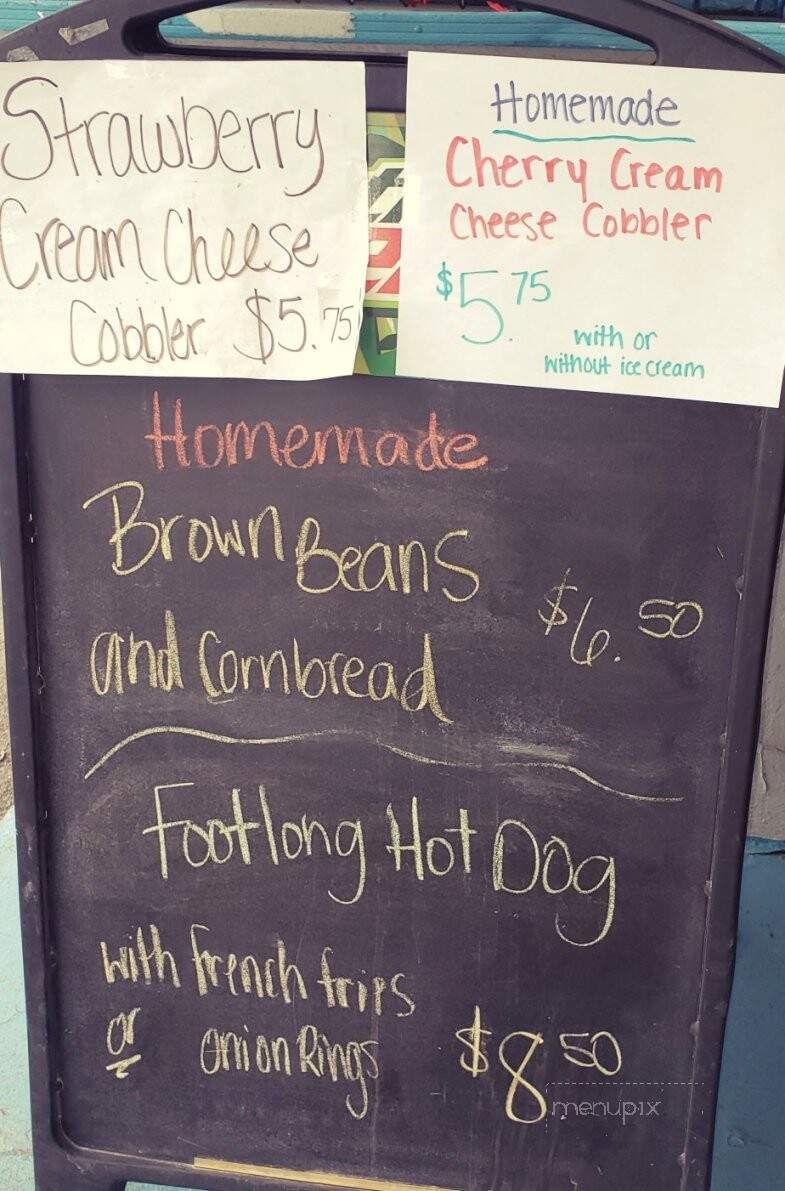 Strawberry
Cream Cheese
Cobbler $5.75
Homemade
Cherry Cream
Cheese Cobbler
$5.75
with or
without ice cream
Homemade
Brown Beans
and Cornbread
$6.50
Footlong Hot Dog
with french fries
or onion Rings $8.50
menupix